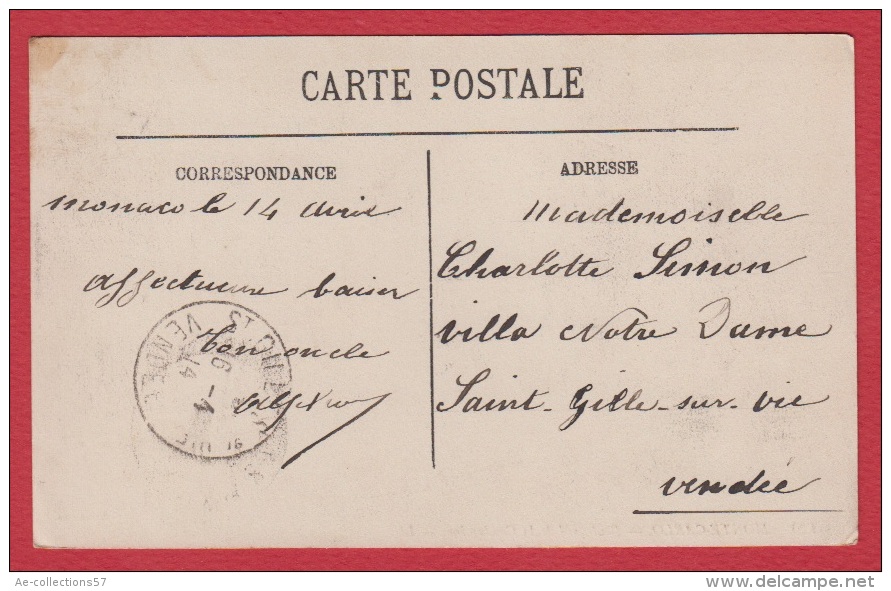 CARTE POSTALE
CORRESPONDANCE
monaco le 14 avril
affectueux baiser
ton oncle
ADRESSE
Mademoiselle
Charlotte Simon
villa Notre Dame
Saint-Gille-sur-vie
vendée
ST GILLES
VENDEE
16 -4
14
Ae-collections57
www.delcampe.net